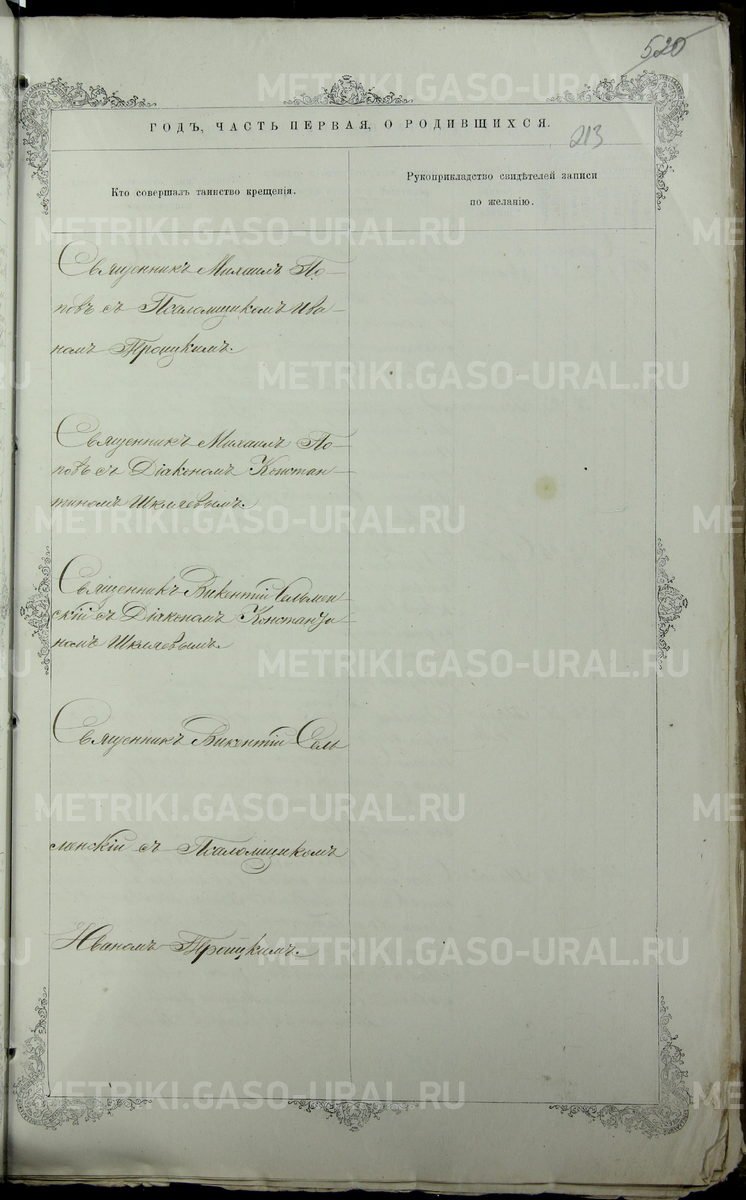 520
ГОДЪ, ЧАСТЬ ПЕРВАЯ, О РОДИВШИХСЯ.
213
Кто совершалъ таинство крещенія.
Рукоприкладство свидѣтелей записи
по желанію.
Священникъ Михаилъ По-
повъ съ Псаломщикомъ Ива-
номъ Троицкимъ.
Священникъ Михаилъ По-
повъ съ Діакономъ Констан-
тиномъ Шкляевымъ.
Священникъ Викентій Сельмен-
скій съ Діакономъ Константи
номъ Шкляевымъ.
Священникъ Викентій Сель
менскій съ Псаломщикомъ
Иваномъ Троицкимъ.
METRIKI.GASO-URAL.RU